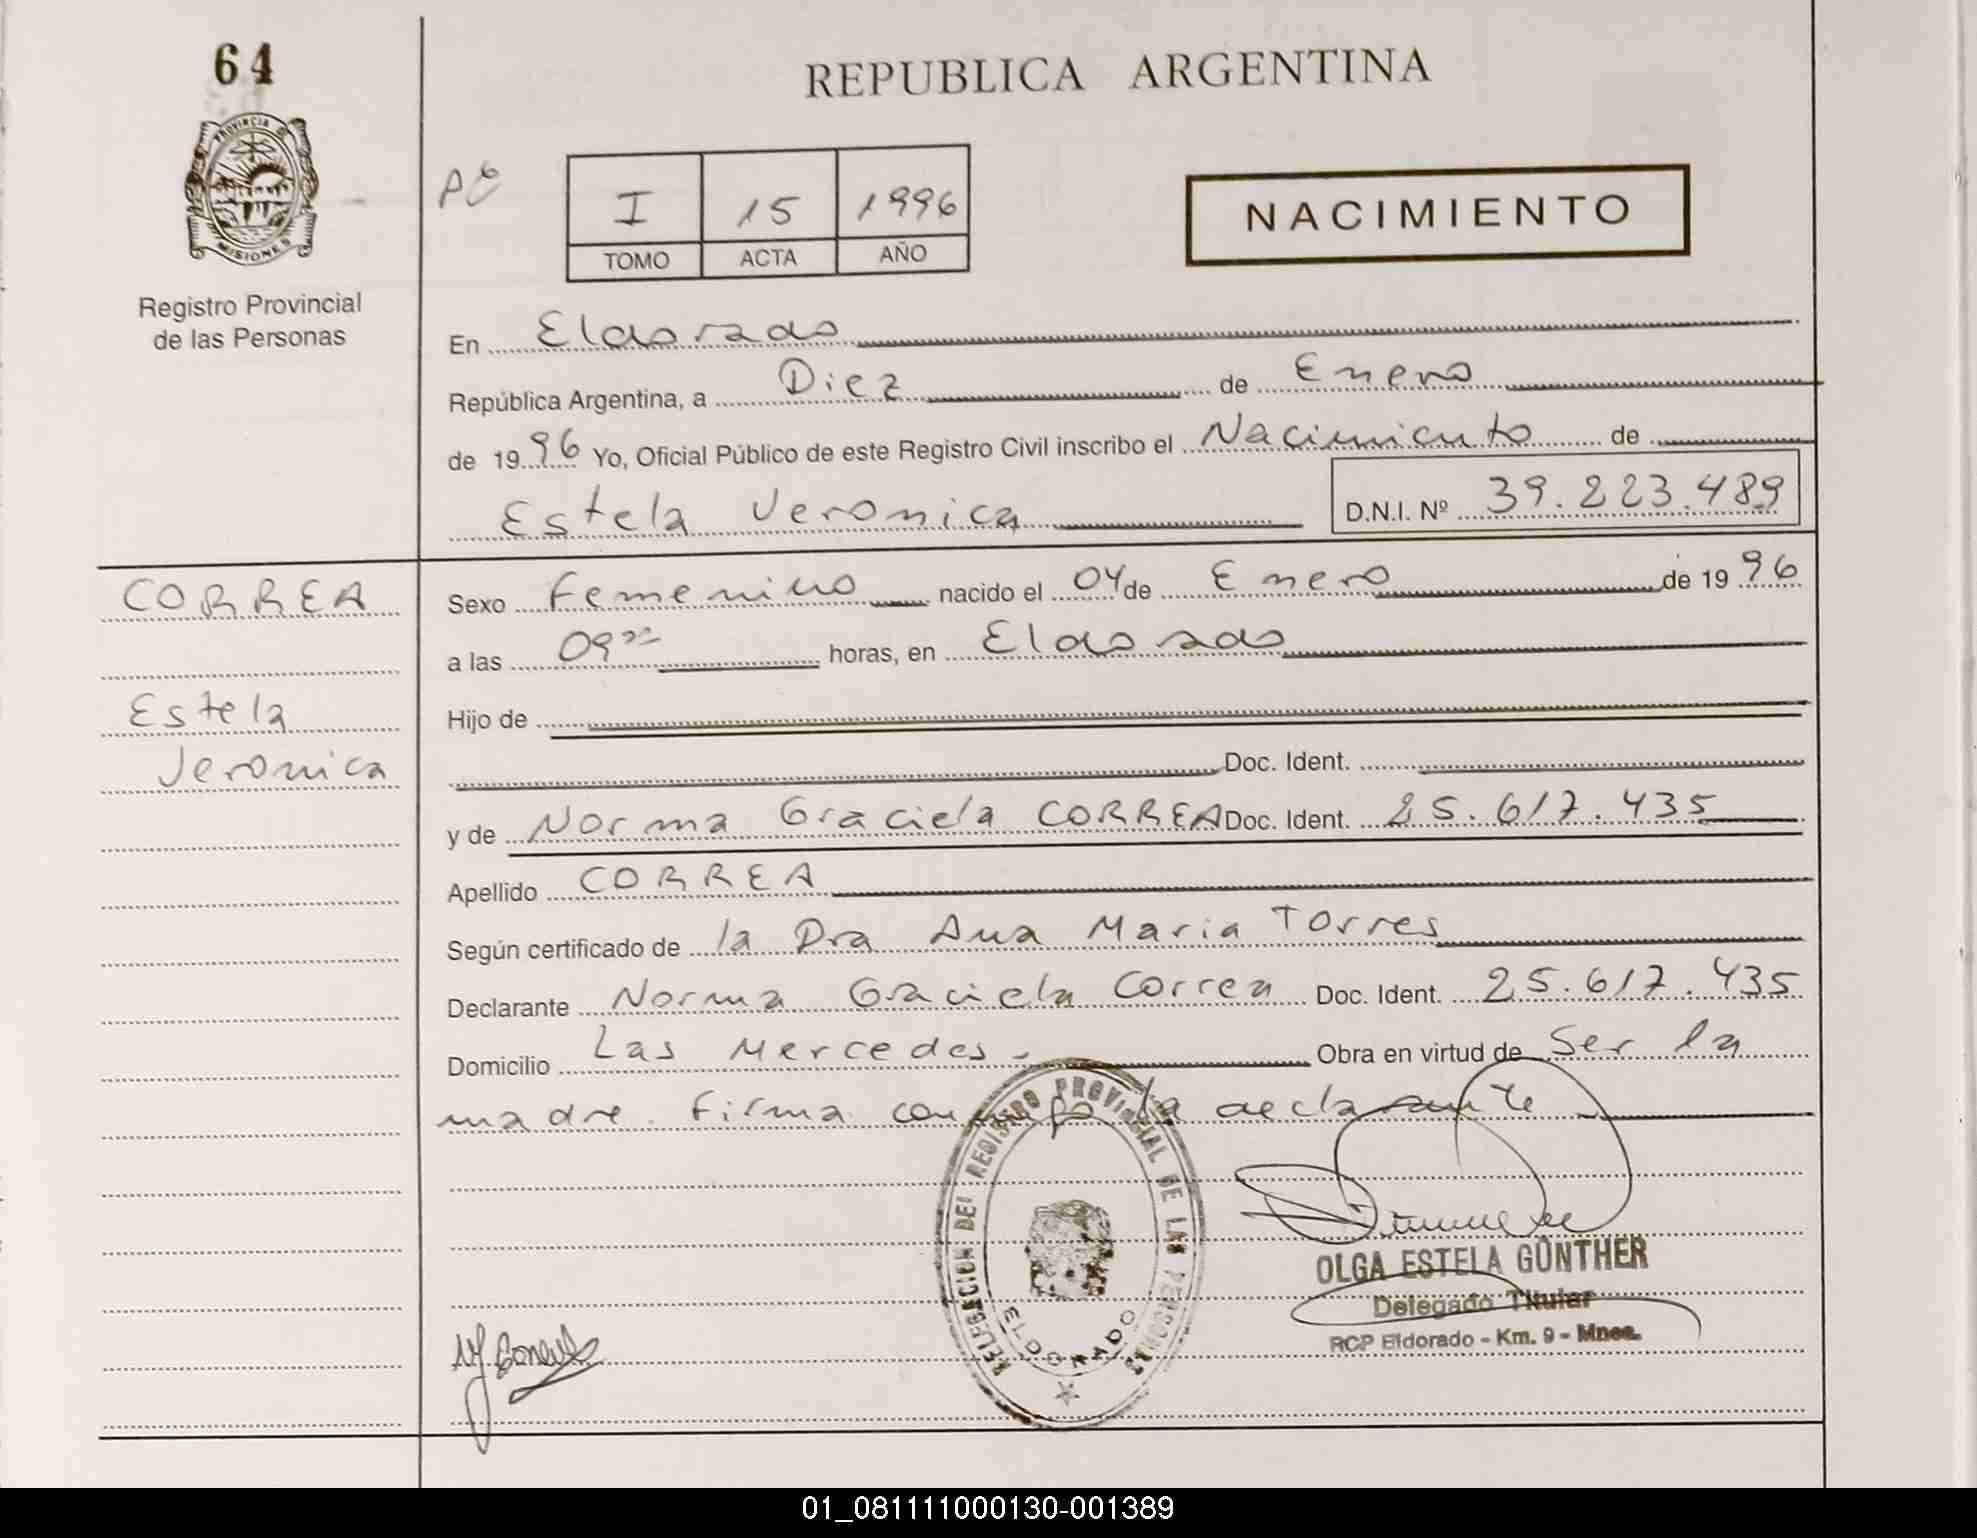 64
REPUBLICA ARGENTINA
PROVINCIA DE
MISIONES
I 15 1996
TOMO ACTA AÑO
NACIMIENTO
Registro Provincial
de las Personas
En Eldorado
República Argentina, a Diez de Enero
de 1996 Yo, Oficial Público de este Registro Civil inscribo el Nacimiento de
Estela Veronica D.N.I. Nº 39.223.489
CORREA
Sexo Femenino nacido el 04 de Enero de 1996
a las 09 horas, en Eldorado
Estela
Veronica
Hijo de
Doc. Ident.
y de Norma Graciela CORREA Doc. Ident. 25.617.435
Apellido CORREA
Según certificado de la Dra Ana Maria Torres
Declarante Norma Graciela Correa Doc. Ident. 25.617.435
Domicilio Las Mercedes - Obra en virtud de Ser la
madre. Firma conmigo la declarante
DELEGACION DEL REGISTRO PROVINCIAL DE LAS PERSONAS
ELDORADO
OLGA ESTELA GÜNTHER
Delegado Titular
RCP Eldorado - Km. 9 - Mnes.
01_081111000130-001389